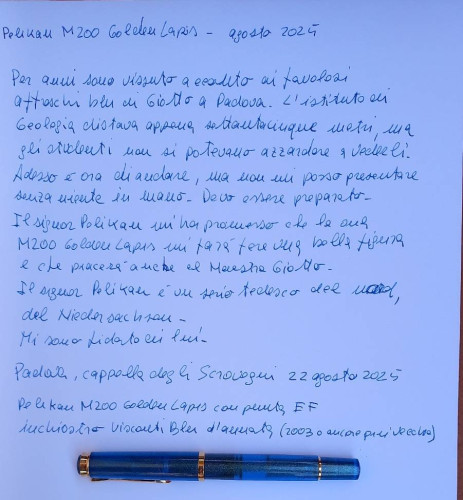 Pelikan M200 Golden Lapis - agosto 2025
Per anni sono vissuto accanto ai favolosi
affreschi blu di Giotto a Padova. L'istituto di
Geologia distava appena settantacinque metri, ma
gli studenti non si potevano azzardare a vederli.
Adesso è ora di andare, ma non mi posso presentare
senza niente in mano. Devo essere preparato.
Il signor Pelikan mi ha promesso che la sua
M200 Golden Lapis mi farà fare una bella figura
e che piacerà anche al Maestro Giotto.
Il signor Pelikan è un serio tedesco del nord,
del Niedersachsen.
Mi sono fidato di lui.
Padova, cappella degli Scrovegni 22 agosto 2025
Pelikan M200 Golden Lapis con punta EF
inchiostro Visconti Blu d'annata (2003 o ancora più vecchio)